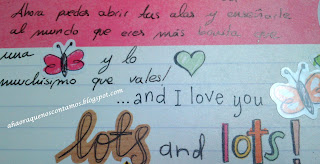 Ahora puedes abrir tus alas y enseñarle
al mundo que eres más bonita que
una y lo
muchísimo que vales!
ahaoraquenoscontamos.blogspot.com
...and I love you
lots and lots!